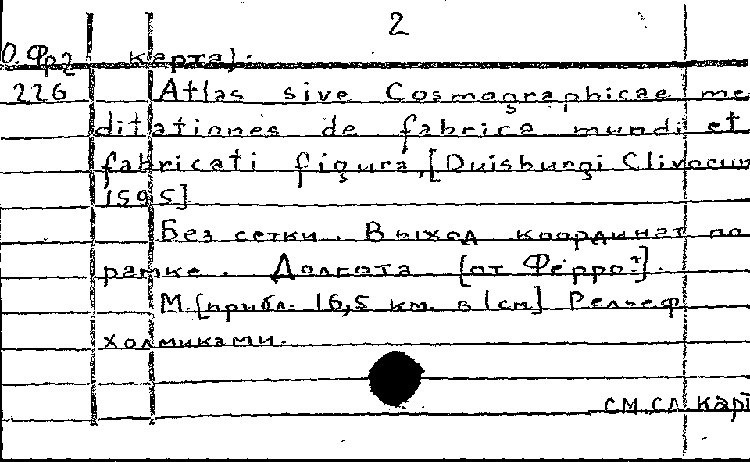 2
О.Фр2 карта).
226 Atlas sive Cosmographicae me
ditationes de fabrica mundi et
fabricati figura, [Duisburgi Clivocum
1595]
Без сетки. Выход координат по
рамке. Долгота [от Ферро?].
М.[прибл. 16,5 км. в 1см] Рельеф
холмиками.
см. сл. карт